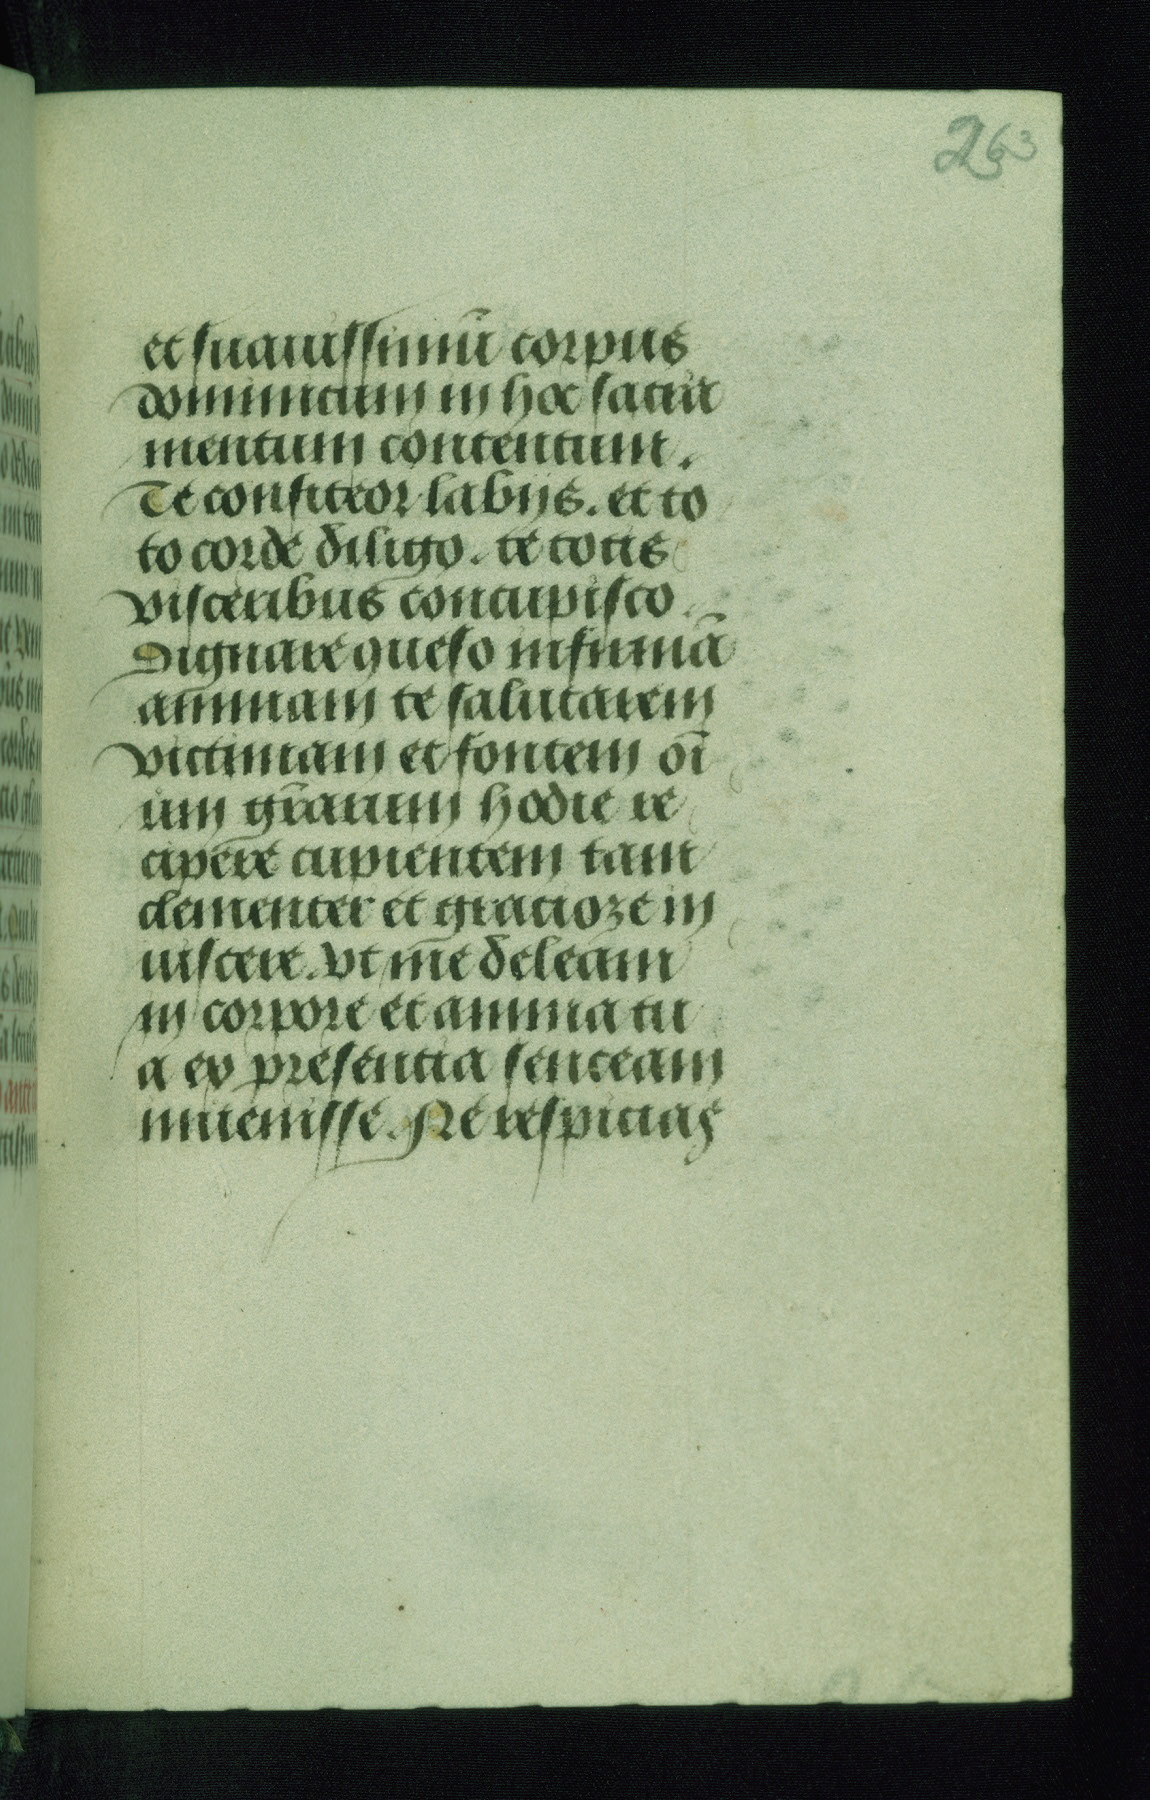 263
et suauissimū corpus
dominicum in hoc sacra
mentum contentum.
Te confiteor labijs. et to
to corde diligo. te totis
visceribus concupisco.
Dignare queso infirmā
animam te salutarem
victimam et fontem oī
um gr̄arum hodie re
cipere cupientem tam
clementer et gracioze in
uiscere. vt me deleam
in corpore et anima tu
a ex presentia senteam
inuenisse. Ne respicias